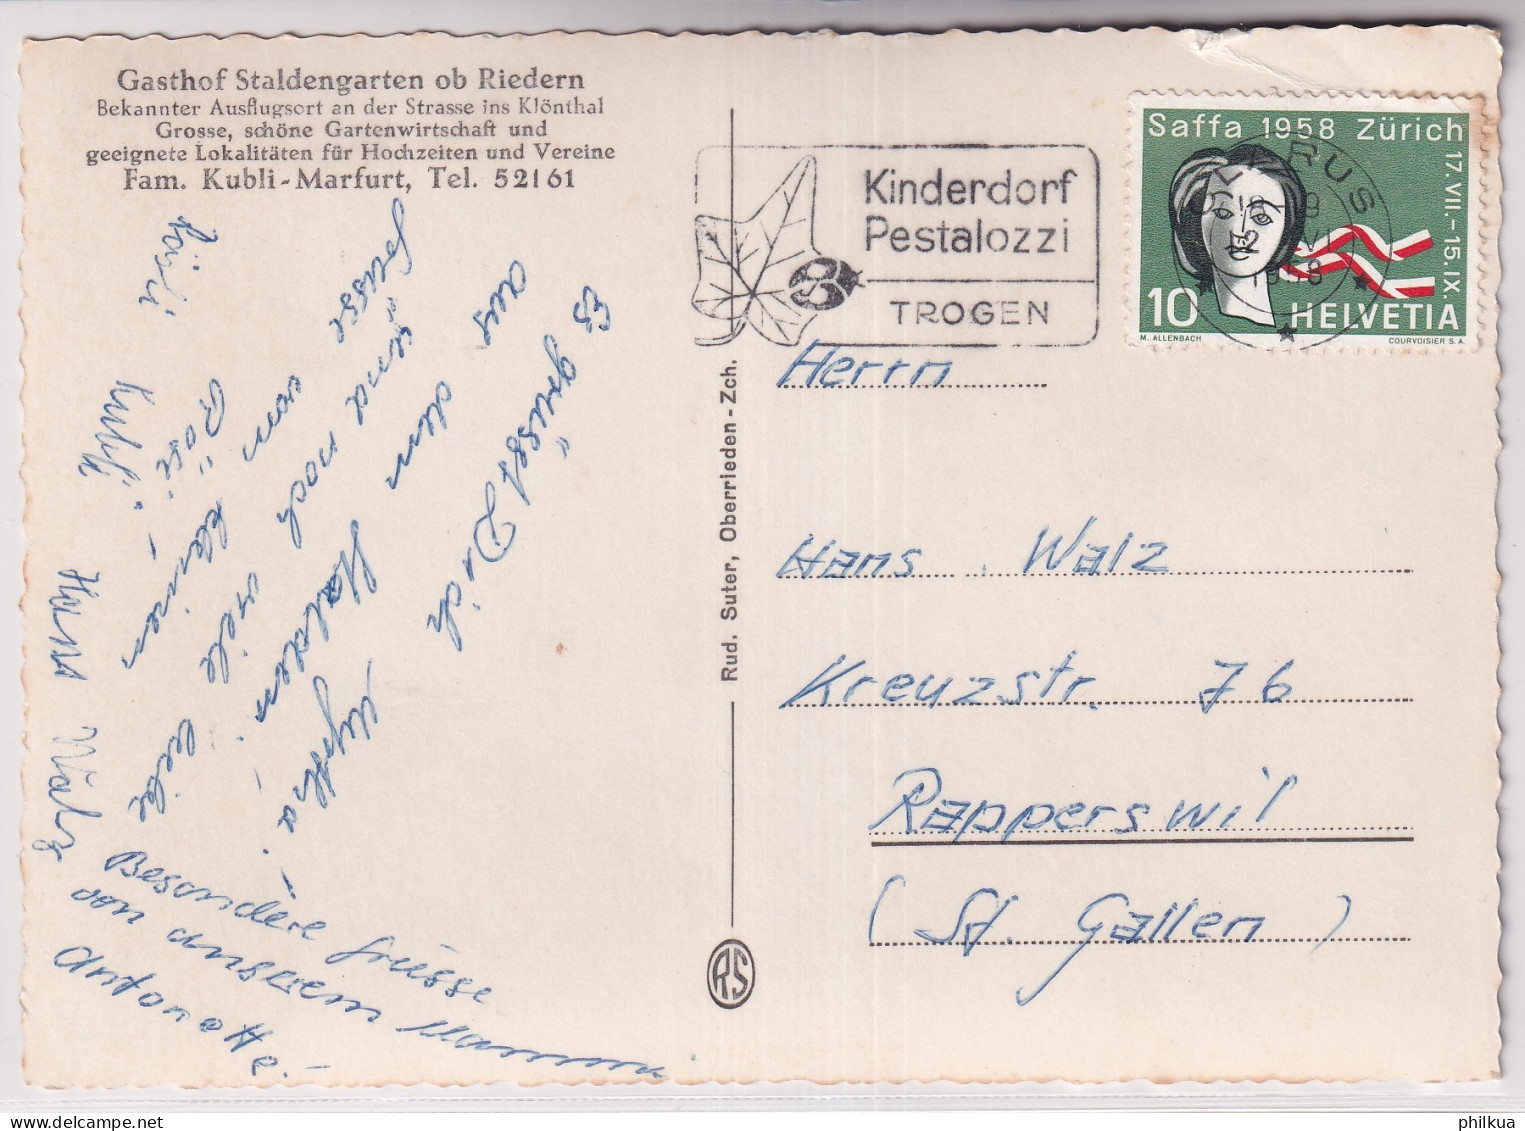 Gasthof Staldengarten ob Riedern
Bekannter Ausflugsort an der Strasse ins Klönthal
Grosse, schöne Gartenwirtschaft und
geeignete Lokalitäten für Hochzeiten und Vereine
Fam. Kubli-Marfurt, Tel. 52161
Kinderdorf
Pestalozzi
TROGEN
Saffa 1958 Zürich
17. VII.-15. IX.
10
HELVETIA
M. ALLENBACH
COURVOISIER S.A.
GLARUS
1958
Es grüsst Dich
aus dem Stalden
Myrtha.
und noch viele liebe
Grüsse
vom kleinen
Rösi
Kubli
Hans Walz
Besondere Grüsse
von unserem
Antonette.
Rud. Suter, Oberrieden-Zch.
RS
Herrn
Hans Walz
Kreuzstr. 76
Rapperswil
(St. Gallen)
philkua